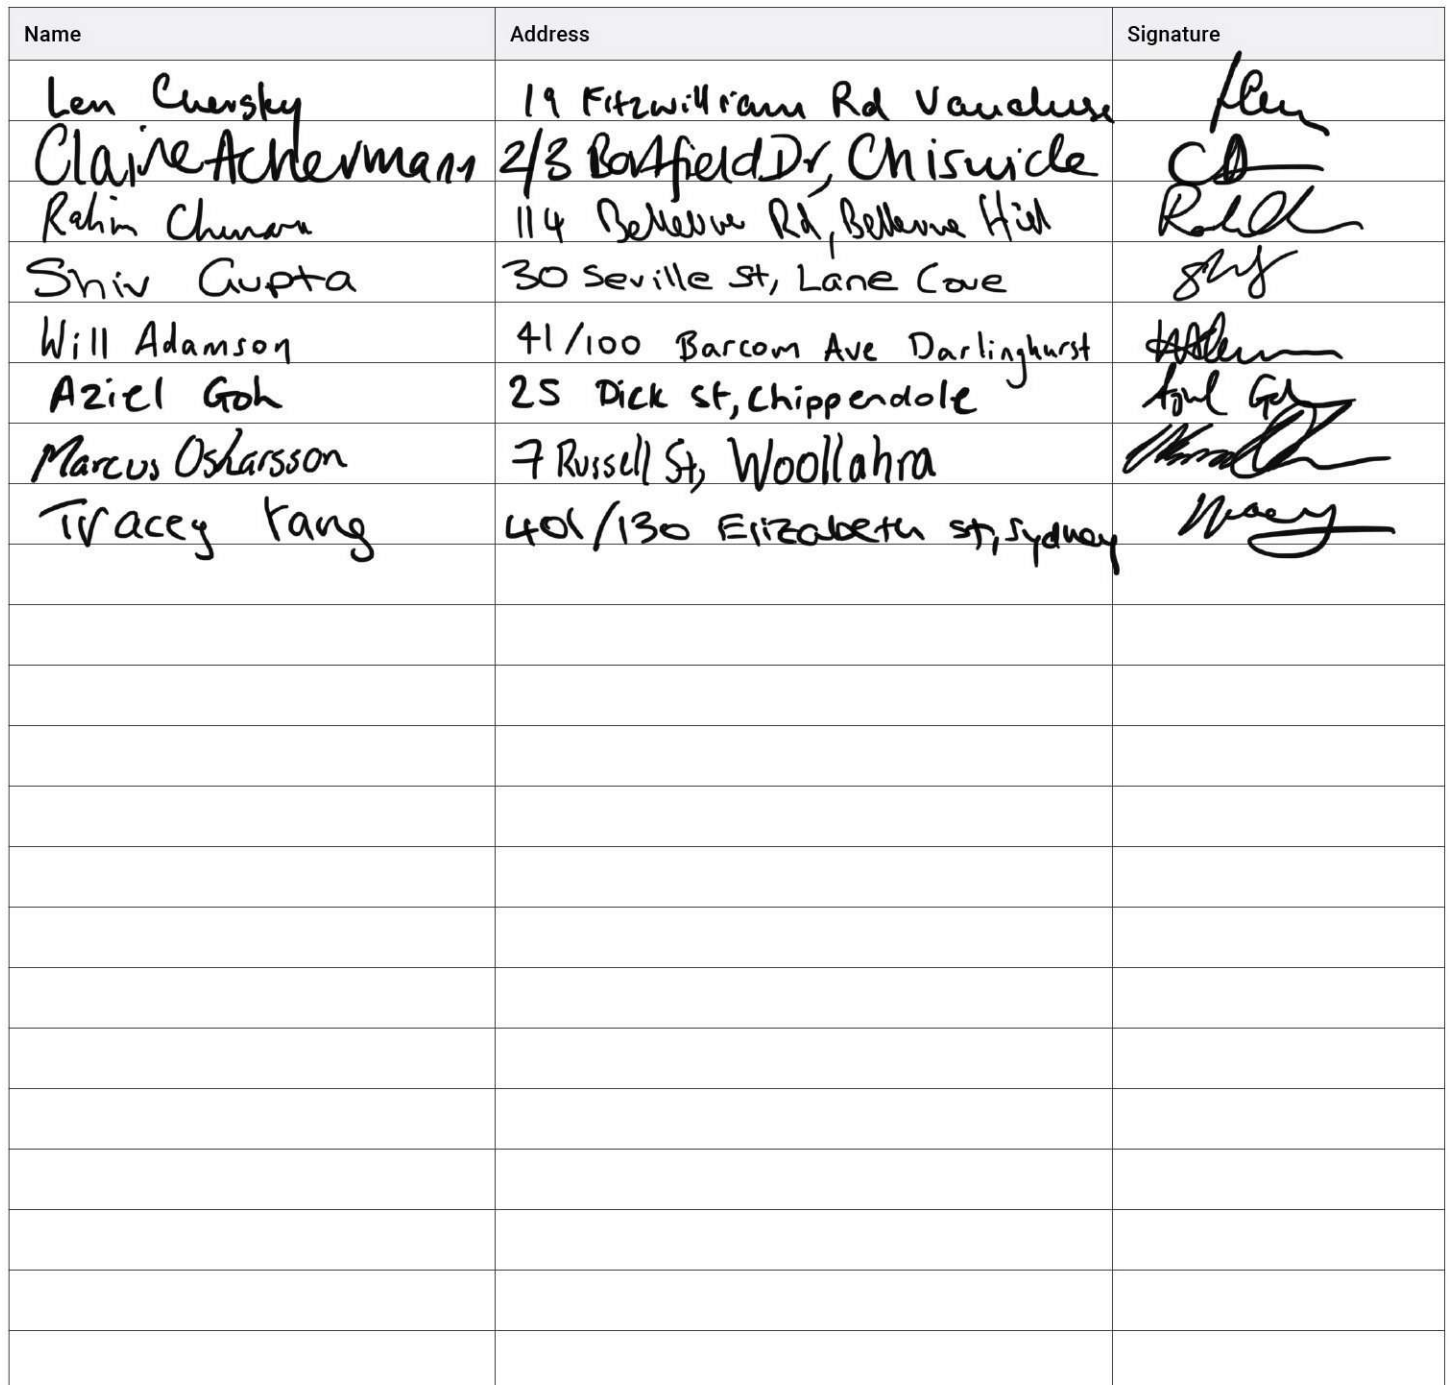 Name Address Signature
Len Chersky 19 Fitzwilliam Rd Vaucluse
Claire Achermann 2/3 Bortfield Dr, Chiswick
Rahim 114 Bellevue Rd, Bellevue Hill
Shiv Gupta 30 Seville St, Lane Cove
Will Adamson 41/100 Barcom Ave Darlinghurst
Aziel Goh 25 Dick St, Chippendale Aziel Goh
Marcus Oskarsson 7 Russell St, Woollahra
Tracey Yang 401/130 Elizabeth St, Sydney Tracey